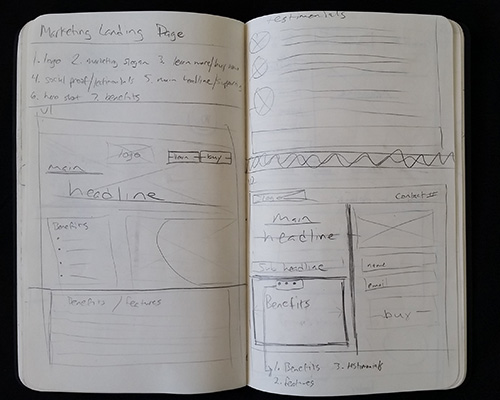 Marketing Landing Page
1. logo 2. marketing slogan 3. learn more/buy
4. social proof/testimonials 5. main headline/
6. hero shot 7. benefits
V1
logo
learn buy
main
headline
Benefits
Benefits / features
Testimonials
Logo
Contact
Main
headline
Sub headline
Benefits
name
email
buy
1. Benefits 3. testimonials
2. features